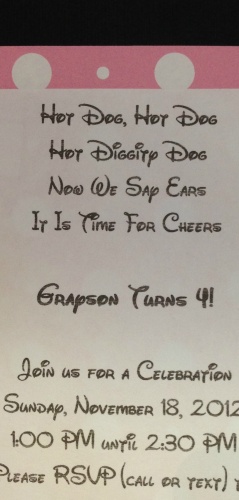 Hot Dog, Hot Dog
Hot Diggity Dog
Now We Say Ears
It Is Time For Cheers
Grayson Turns 4!
Join us for a Celebration
Sunday, November 18, 2012
1:00 PM until 2:30 PM
Please RSVP (call or text)